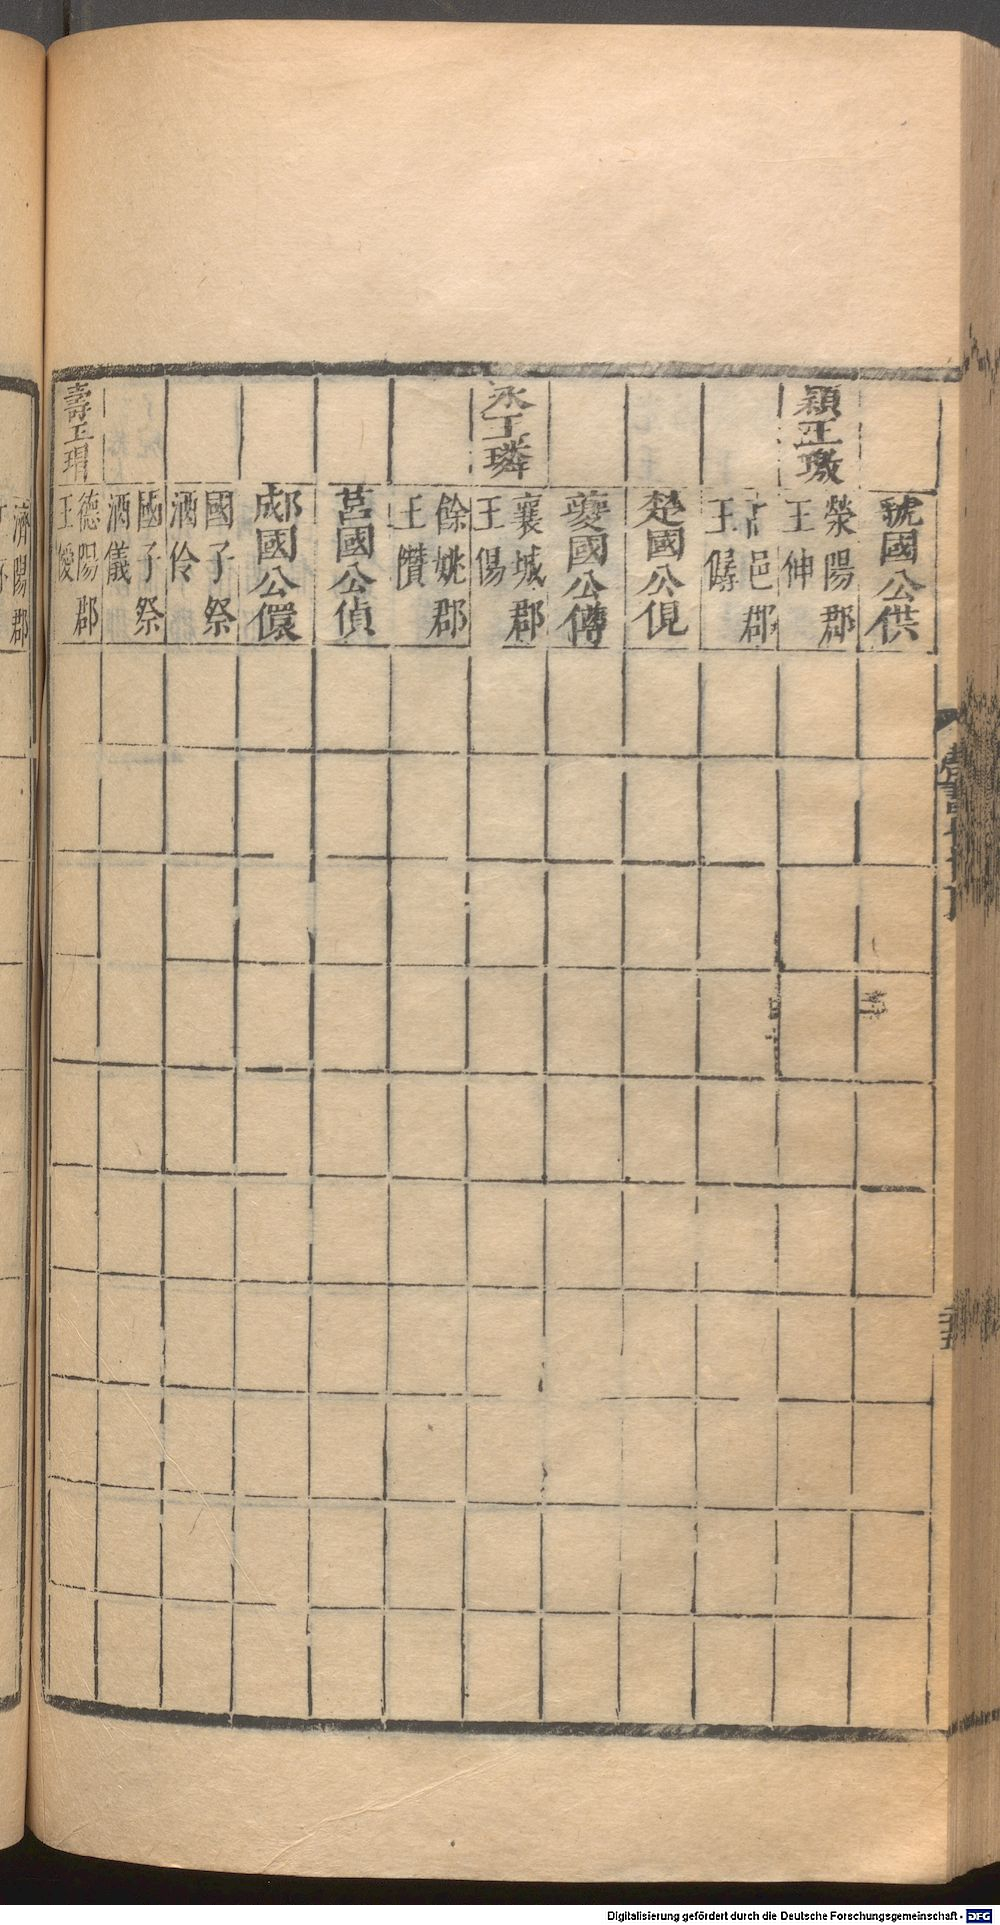 虢國公供
潁王璬
滎陽郡
王伸
邑郡
王僝
楚國公俔
夔國公傳
永王璘
襄城郡
王偒
餘姚郡
王儹
莒國公偵
郕國公儇
國子祭
酒伶
國子祭
酒儀
壽王瑁
德陽郡
王僾
濟陽郡
Digitalisierung gefördert durch die Deutsche Forschungsgemeinschaft - DFG